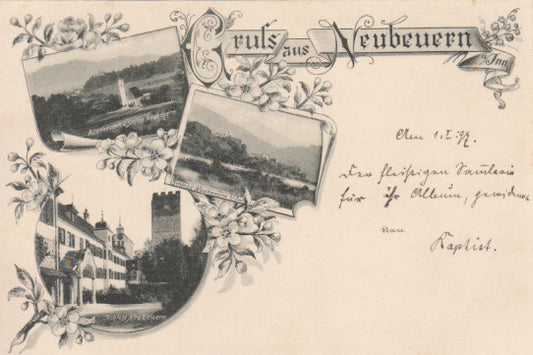 Gruss aus Neubeuern
a/Inn
Altenbeuern & Schloss Neubeuern
Schloss Neubeuern
Am 1.I.97.
Der fleißigen Sammlerin
für ihr Album, gewidmet
von
Baptist.